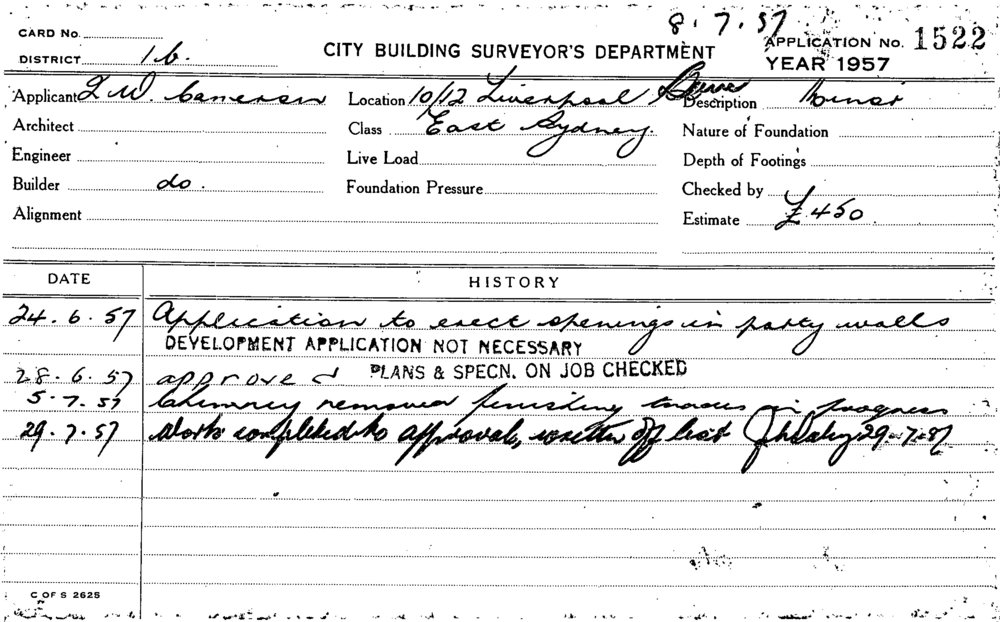 8.7.57
CARD No.
DISTRICT 1b.
CITY BUILDING SURVEYOR'S DEPARTMENT
APPLICATION No. 1522
YEAR 1957
Applicant W. Cameron
Location 10/12 Liverpool
Description Minor
Architect
Class East Sydney.
Nature of Foundation
Engineer
Live Load
Depth of Footings
Builder do.
Foundation Pressure
Checked by
Alignment
Estimate £450.
DATE HISTORY
24.6.57 Application to erect openings in party walls
DEVELOPMENT APPLICATION NOT NECESSARY
28.6.57 approved PLANS & SPECN. ON JOB CHECKED
5.7.57 Chimney removed finishing trades in progress
29.7.57 Work completed to approval, off list 29-7-57
C OF S 2625